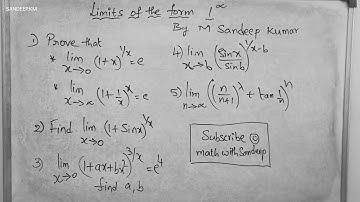 SANDEEPKM
Limits of the form 1^∞
By M Sandeep Kumar
1) Prove that
* lim x→0 (1+x)^1/x = e
* lim x→∞ (1+1/x)^x = e
2) Find lim x→0 (1+Sinx)^1/x
3) lim x→0 (1+ax+bx²)^3/x = e⁴
find a,b
4) lim x→b (sinx/sinb)^1/x-b
5) lim n→∞ ((n/n+1)^x + tan 1/n)^n
Subscribe ☺
math with Sandeep